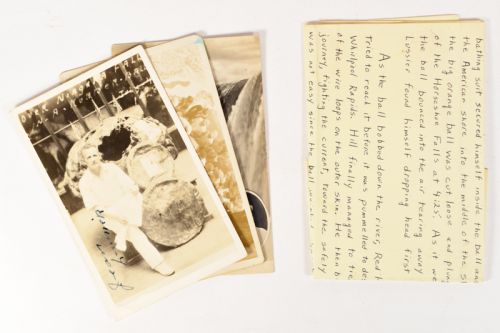 bathing suit secured himself inside the ball and
the American shore into the middle of the
the big orange ball was cut loose and
of the Horseshoe Falls at 4:25. As it
the ball bounced into the air tearing away
Lussier found himself dropping head first
As the ball bobbed down the river, Red
Tried to reach it before it was pummelled to
Whirlpool Rapids. Hill finally managed to tie
of the wire loops on the outer skin. He then
journey, fighting the current, toward the safety
was not easy since the ball